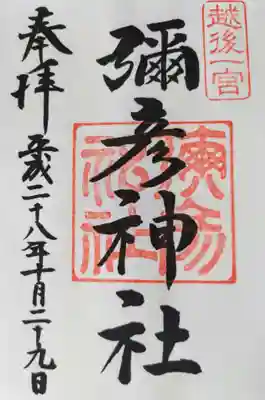 越後一宮
彌彦神社
奉拝 平成二十八年十月二十九日